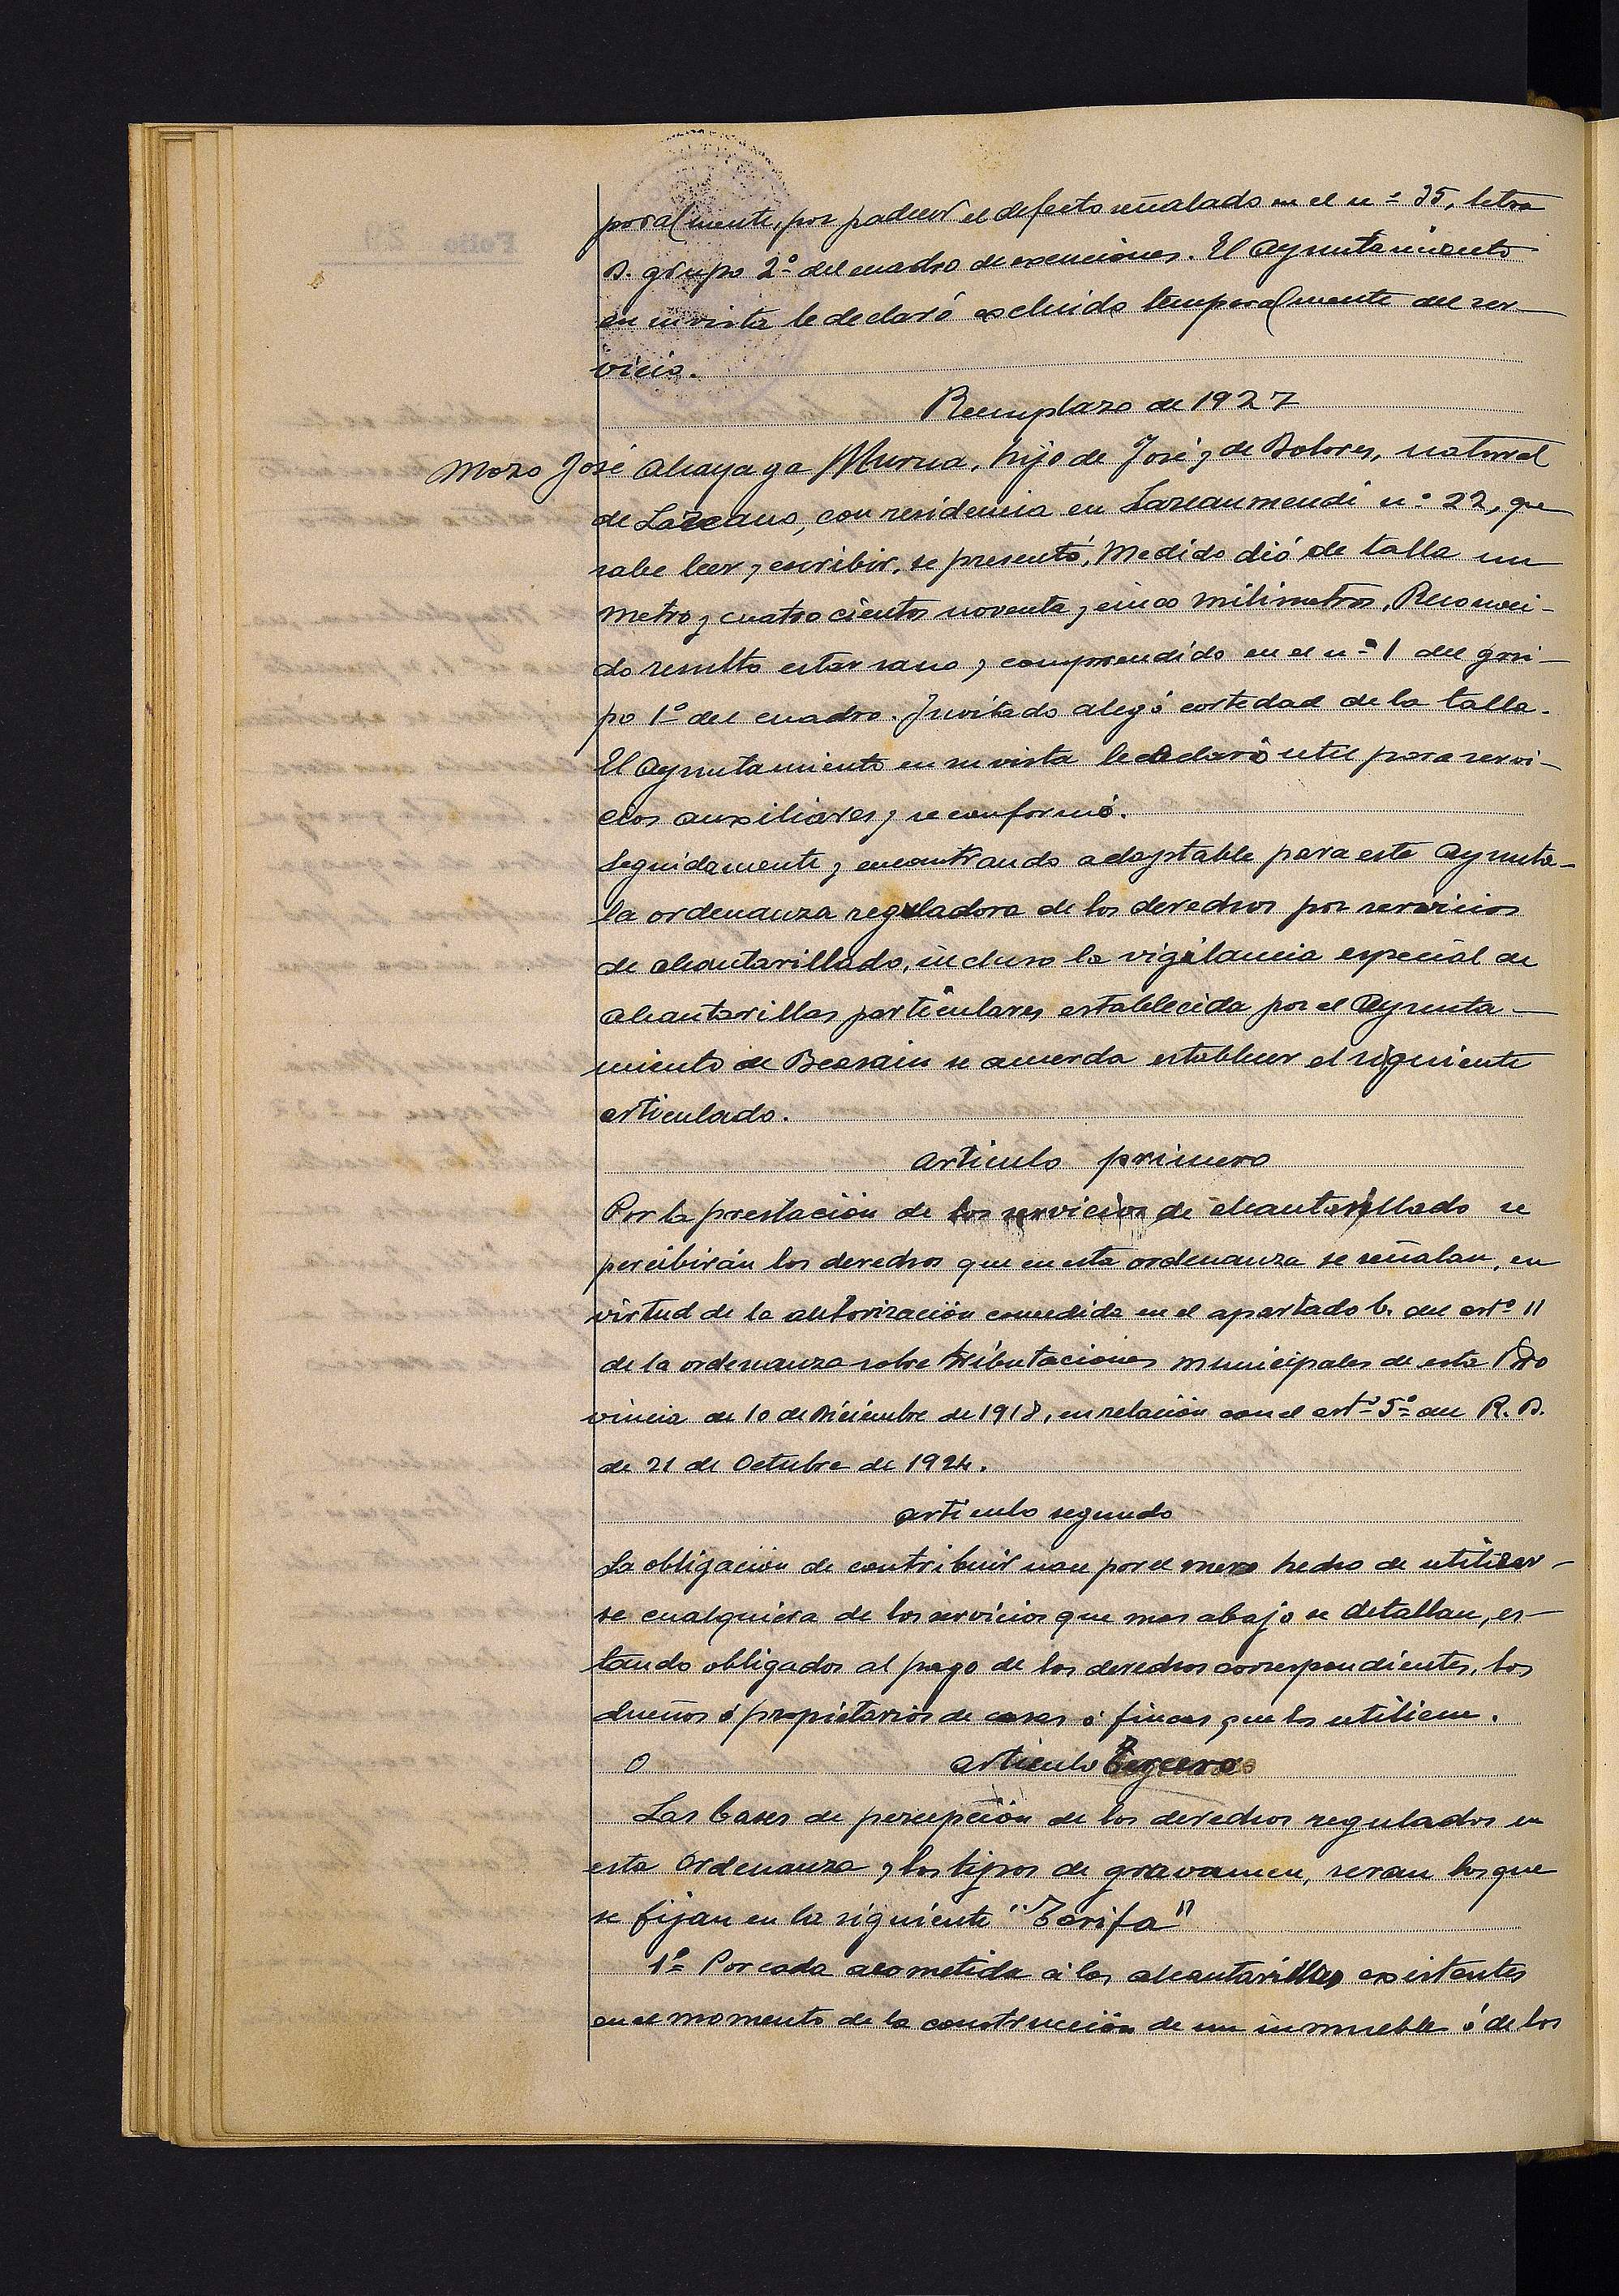 poralmente, por padecer el defecto señalado en el nº 35, letra
D. grupo 2º del cuadro de exenciones. El Ayuntamiento
en su vista le declaró excluido temporalmente del ser-
vicio.
Reemplazo de 1927
Mozo José Aliayaga Murua, hijo de José y de Dolores, natural
de Lazcano, con residencia en Lazcaumendi nº 22, que
sabe leer y escribir, se presentó, Medido dió de talla un
metro y cuatrocientos noventa y cinco milimetros, Reconoci-
do resulto estar sano y comprendido en el nº 1 del gru-
po 1º del cuadro. Invitado alegó cortedad de la talla.
El Ayuntamiento en su vista le declaró util para servi-
cios auxiliares y se conformó.
Seguidamente y encontrando adaptable para este Ayunta-
la ordenanza reguladora de los derechos por servicios
de alcantarillado, incluso la vigilancia especial de
alcantarillas particulares establecida por el Ayunta-
miento de Beasain se acuerda establecer el siguiente
articulado.
Articulo primero
Por la prestación de los servicios de alcantarillado se
percibirán los derechos que en esta ordenanza se señalan, en
virtud de la autorización concedida en el apartado b. del artº 11
de la ordenanza sobre tributaciones municipales de esta Pro
vincia de 10 de Diciembre de 1918, en relación con el artº 5º del R. D.
de 21 de Octubre de 1924.
articulo segundo
La obligación de contribuir nace por el mero hecho de utilizar-
se cualquiera de los servicios que mas abajo se detallan, es-
tando obligados al pago de los derechos correspondientes, los
dueños ó propietarios de casas ó fincas que los utilicen.
O articulo Tercero
Las bases de percepción de los derechos regulados en
esta Ordenanza y los tipos de gravamen, seran los que
se fijan en la siguiente "Tarifa"
1º Por cada acometida á las alcantarillas existentes
en el momento de la construcción de un inmueble ó de los